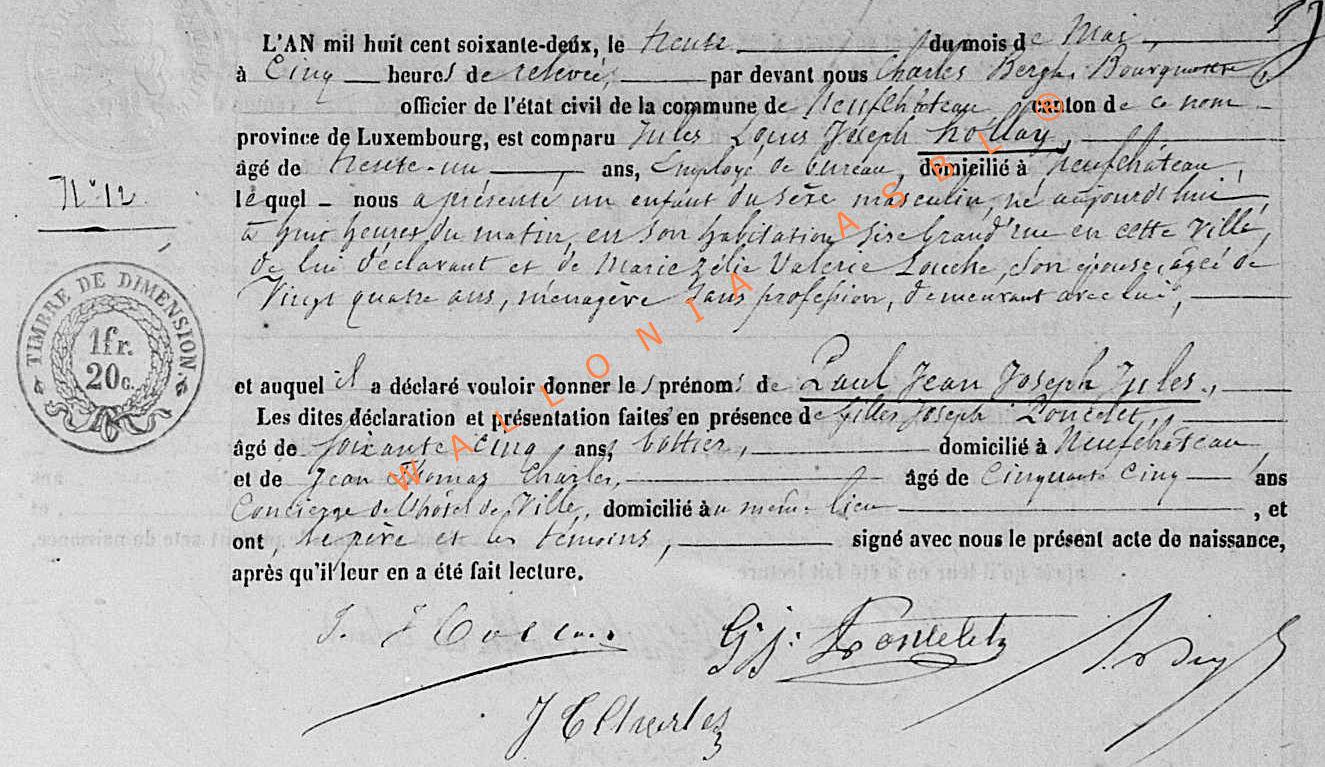 L'AN mil huit cent soixante-deux, le trente du mois de Mai,
à Cinq heures de relevée, par devant nous Charles Bergh, Bourgmestre,
officier de l'état civil de la commune de Neufchâteau canton de ce nom
province de Luxembourg, est comparu Jules Louis Joseph
âgé de trente-un ans, Employé de bureau, domicilié à Neufchâteau,
lequel nous a présenté un enfant du sexe masculin, né aujourd'hui
à huit heures du matin, en son habitation sise Grand'rue en cette Ville,
de lui déclarant et de Marie Zélie Valerie Louche, son épouse, agée de
Vingt quatre ans, ménagère sans profession, demeurant avec lui,
N° 12
TIMBRE DE DIMENSION.
1fr.
20c.
et auquel il a déclaré vouloir donner les prénoms de Paul Jean Joseph Jules,
Les dites déclaration et présentation faites en présence de Gilles Joseph Poncelet,
âgé de soixante cinq ans, domicilié à Neufchâteau
et de Jean Thomas Charles, âgé de Cinquante Cinq ans
Concierge de l'hôtel de Ville, domicilié au même lieu, et
ont, le père et les témoins, signé avec nous le présent acte de naissance,
après qu'il leur en a été fait lecture.
G j: Poncelet
J T Charles
WALLONIA ASBL ®